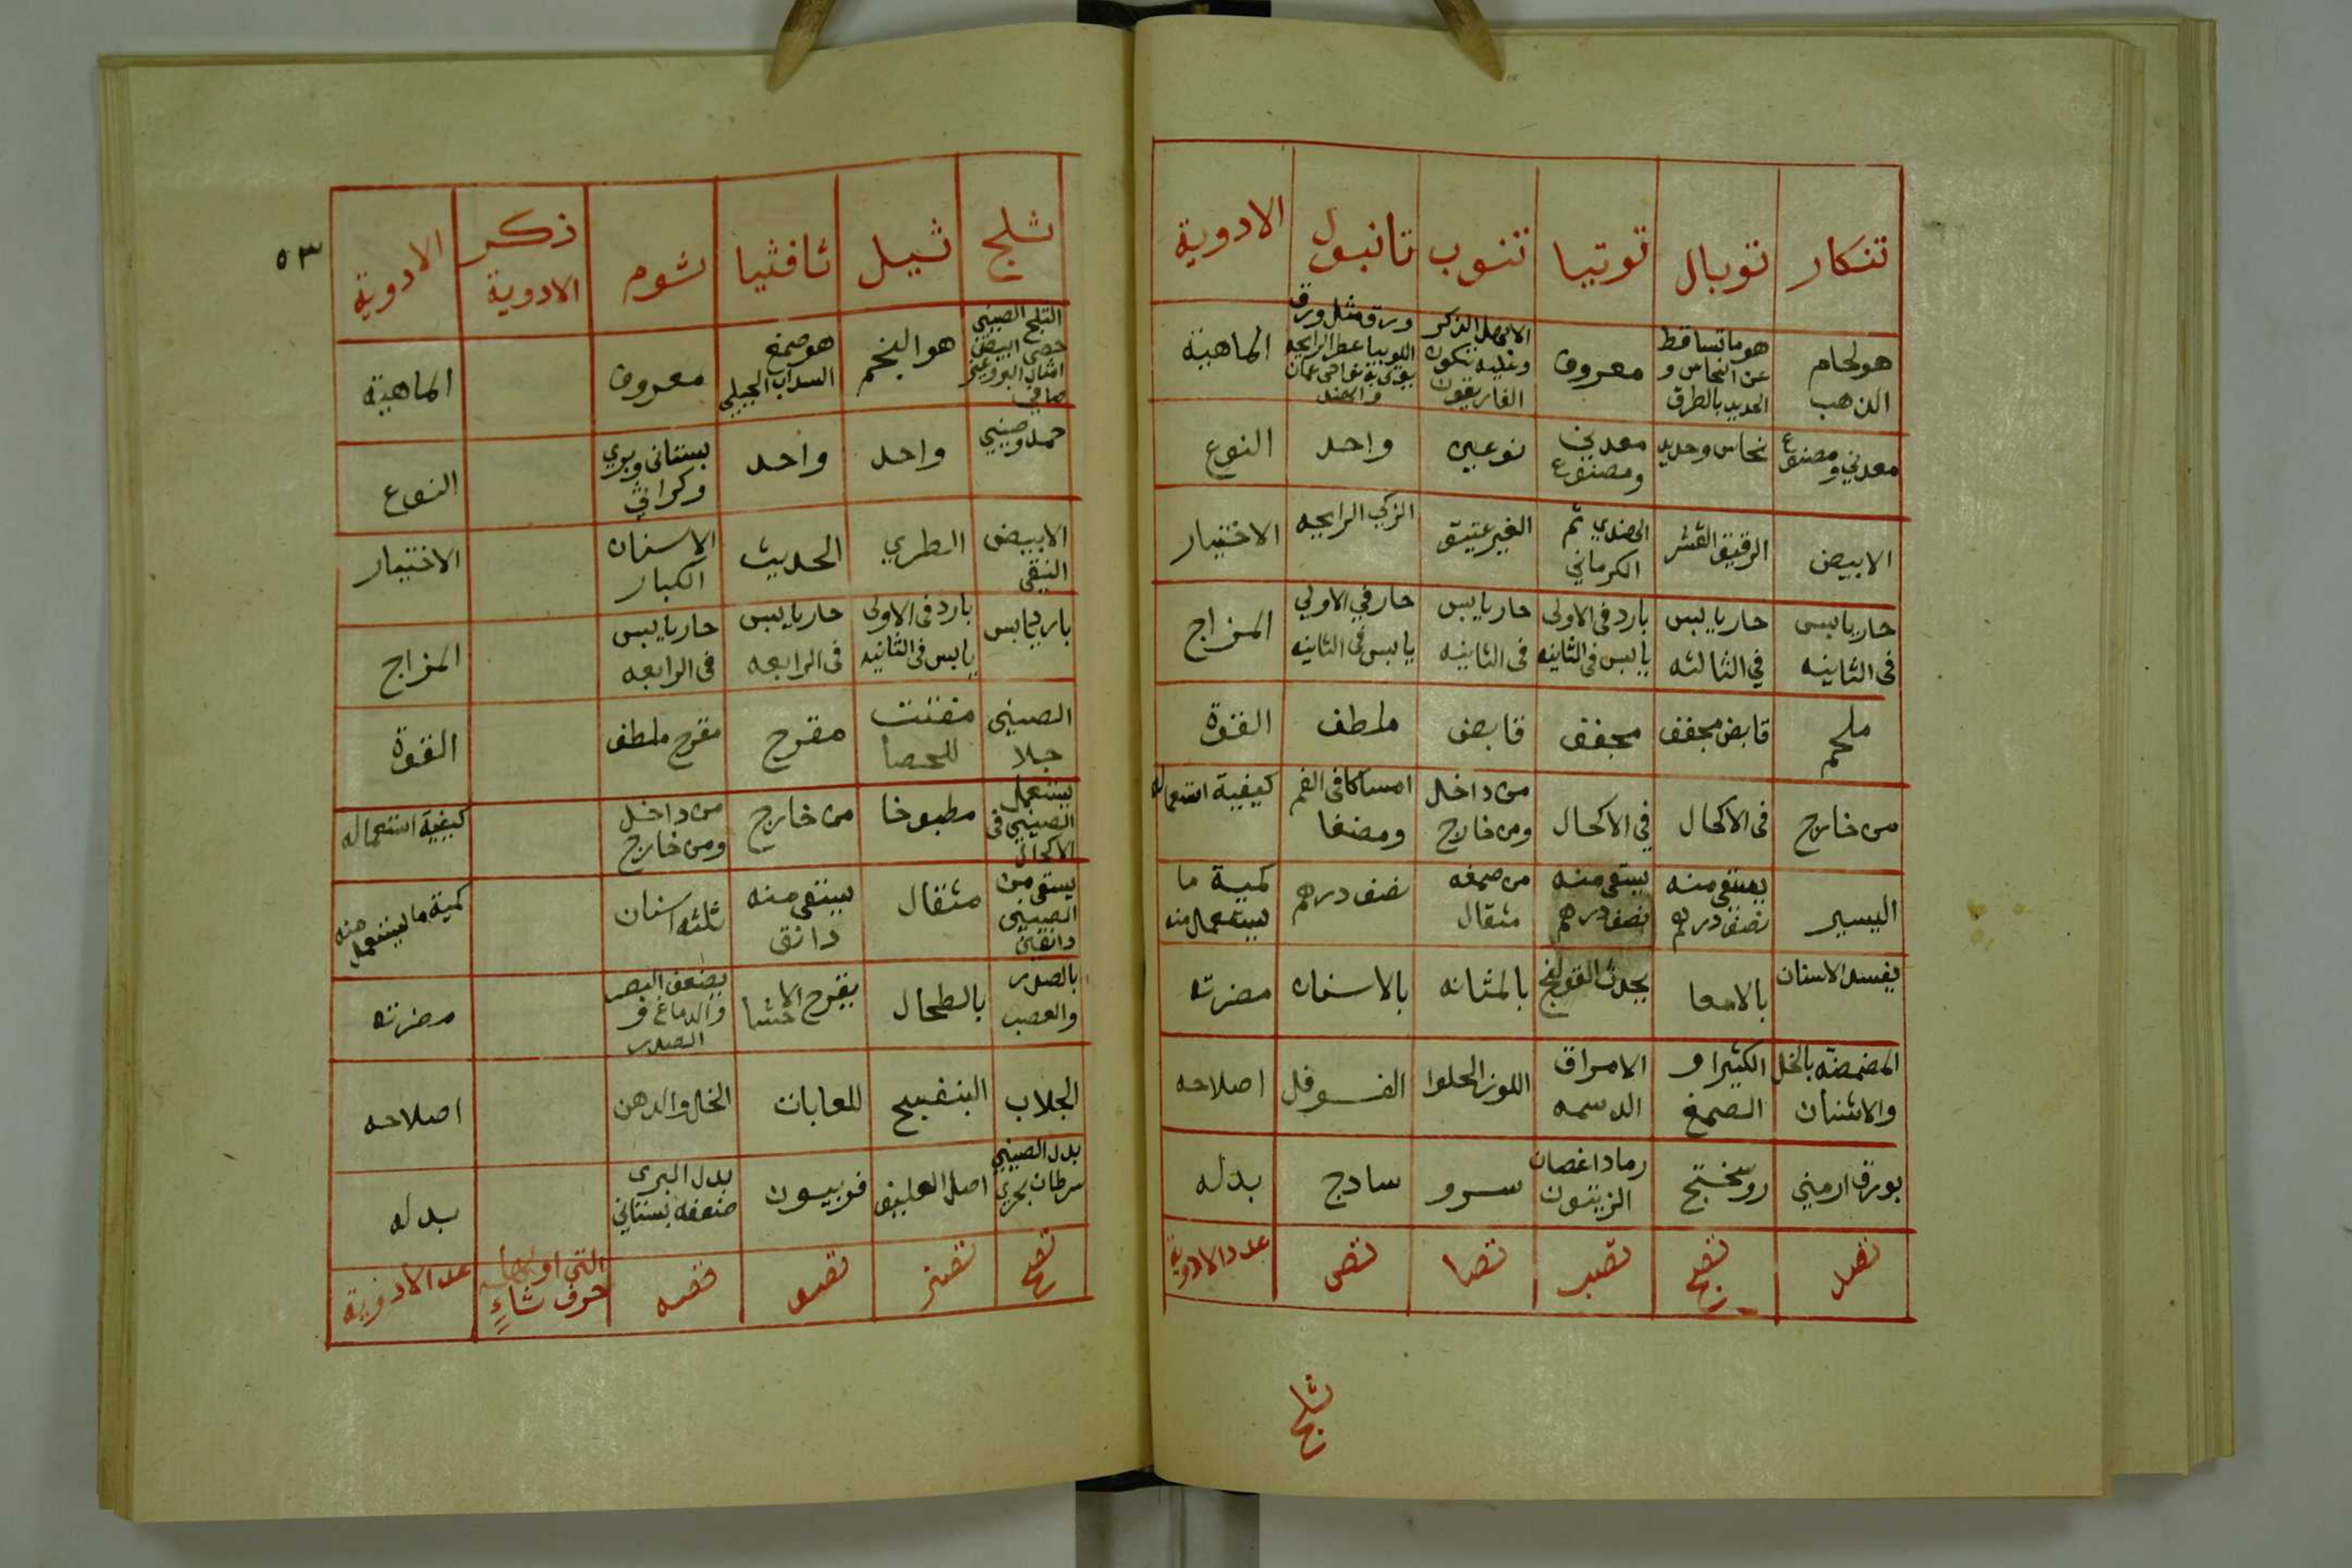 تنكار توبال توتيا تنوب تانبول الادوية
هو لحام الذهب هو ما تساقط عن النحاس و الحديد بالطرق معروف الارز الذكر وفيه تكون ورقه مثل ورق اللوبيا عطر الرايحه الماهية
معدني ومصنوع نحاس وحديد معدني ومصنوع نوعين واحد النوع
الابيض الرقيق القشر الهندي ثم الكرماني الغير عتيق الزكي الرايحه الاختيار
حار يابس فى الثانيه حار يابس في الثالثه بارد فى الاولى يابس فى الثانيه حار يابس فى الثانيه حار في الاولي يابس فى الثانيه المزاج
ملحم قابض مجفف مجفف قابض ملطف القوة
من خارج فى الاكحال في الاكحال من داخل ومن خارج امساكا فى الفم ومضغا كيفية استعماله
اليسير يستقى منه نصف درهم يستقى منه نصف درهم من صمغه مثقال نصف درهم كمية ما يستعمل منه
يفسد الاسنان بالامعا يحدث القولنج بالمثانه بالاسنان مضرته
المضمضه بالخل والاشنان الكثيرا و الصمغ الامراق الدسمه اللوز الحلوا الفوفل اصلاحه
بورق ارمني روسختج رماد اغصان الزيتون سرو سادج بدله
تصد تصج تصب تصا تص عدد الادوية
ثلج
٥٣
ثلج ثيل ثافثيا ثوم ذكر الادوية الادوية
الثلج الصيني حصى ابيض صافي هو النخم هو صمغ السداب الجبلي معروف الماهية
حمد وصيني واحد واحد بستانى وبري وكراثي النوع
الابيض النقى الطري الحديث الاسنان الكبار الاختيار
بارد يابس بارد فى الاولى يابس فى الثانيه حار يابس فى الرابعه حار يابس فى الرابعه المزاج
الصينى جلا مفتت للحصا مقرح مقرح ملطف القوة
يستعمل الصيني فى الاكحال مطبوخا من خارج من داخل ومن خارج كيفية استعماله
يستقى من الصيني دانقين مثقال يستقى منه دانق ثلثه اسنان كمية ما يستعمل منه
بالصدر والعصب بالطحال يقرح الاحشا يضعف البصر والدماغ و الصدر مضرته
الجلاب البنفسج للعابات الخل والدهن اصلاحه
بدل الصيني سرطان بحري اصل العليق فربيون بدل البرى ضعفه بستاني بدله
تصح تصز تصو تصه التي اولها حرف ثاء عدد الادوية